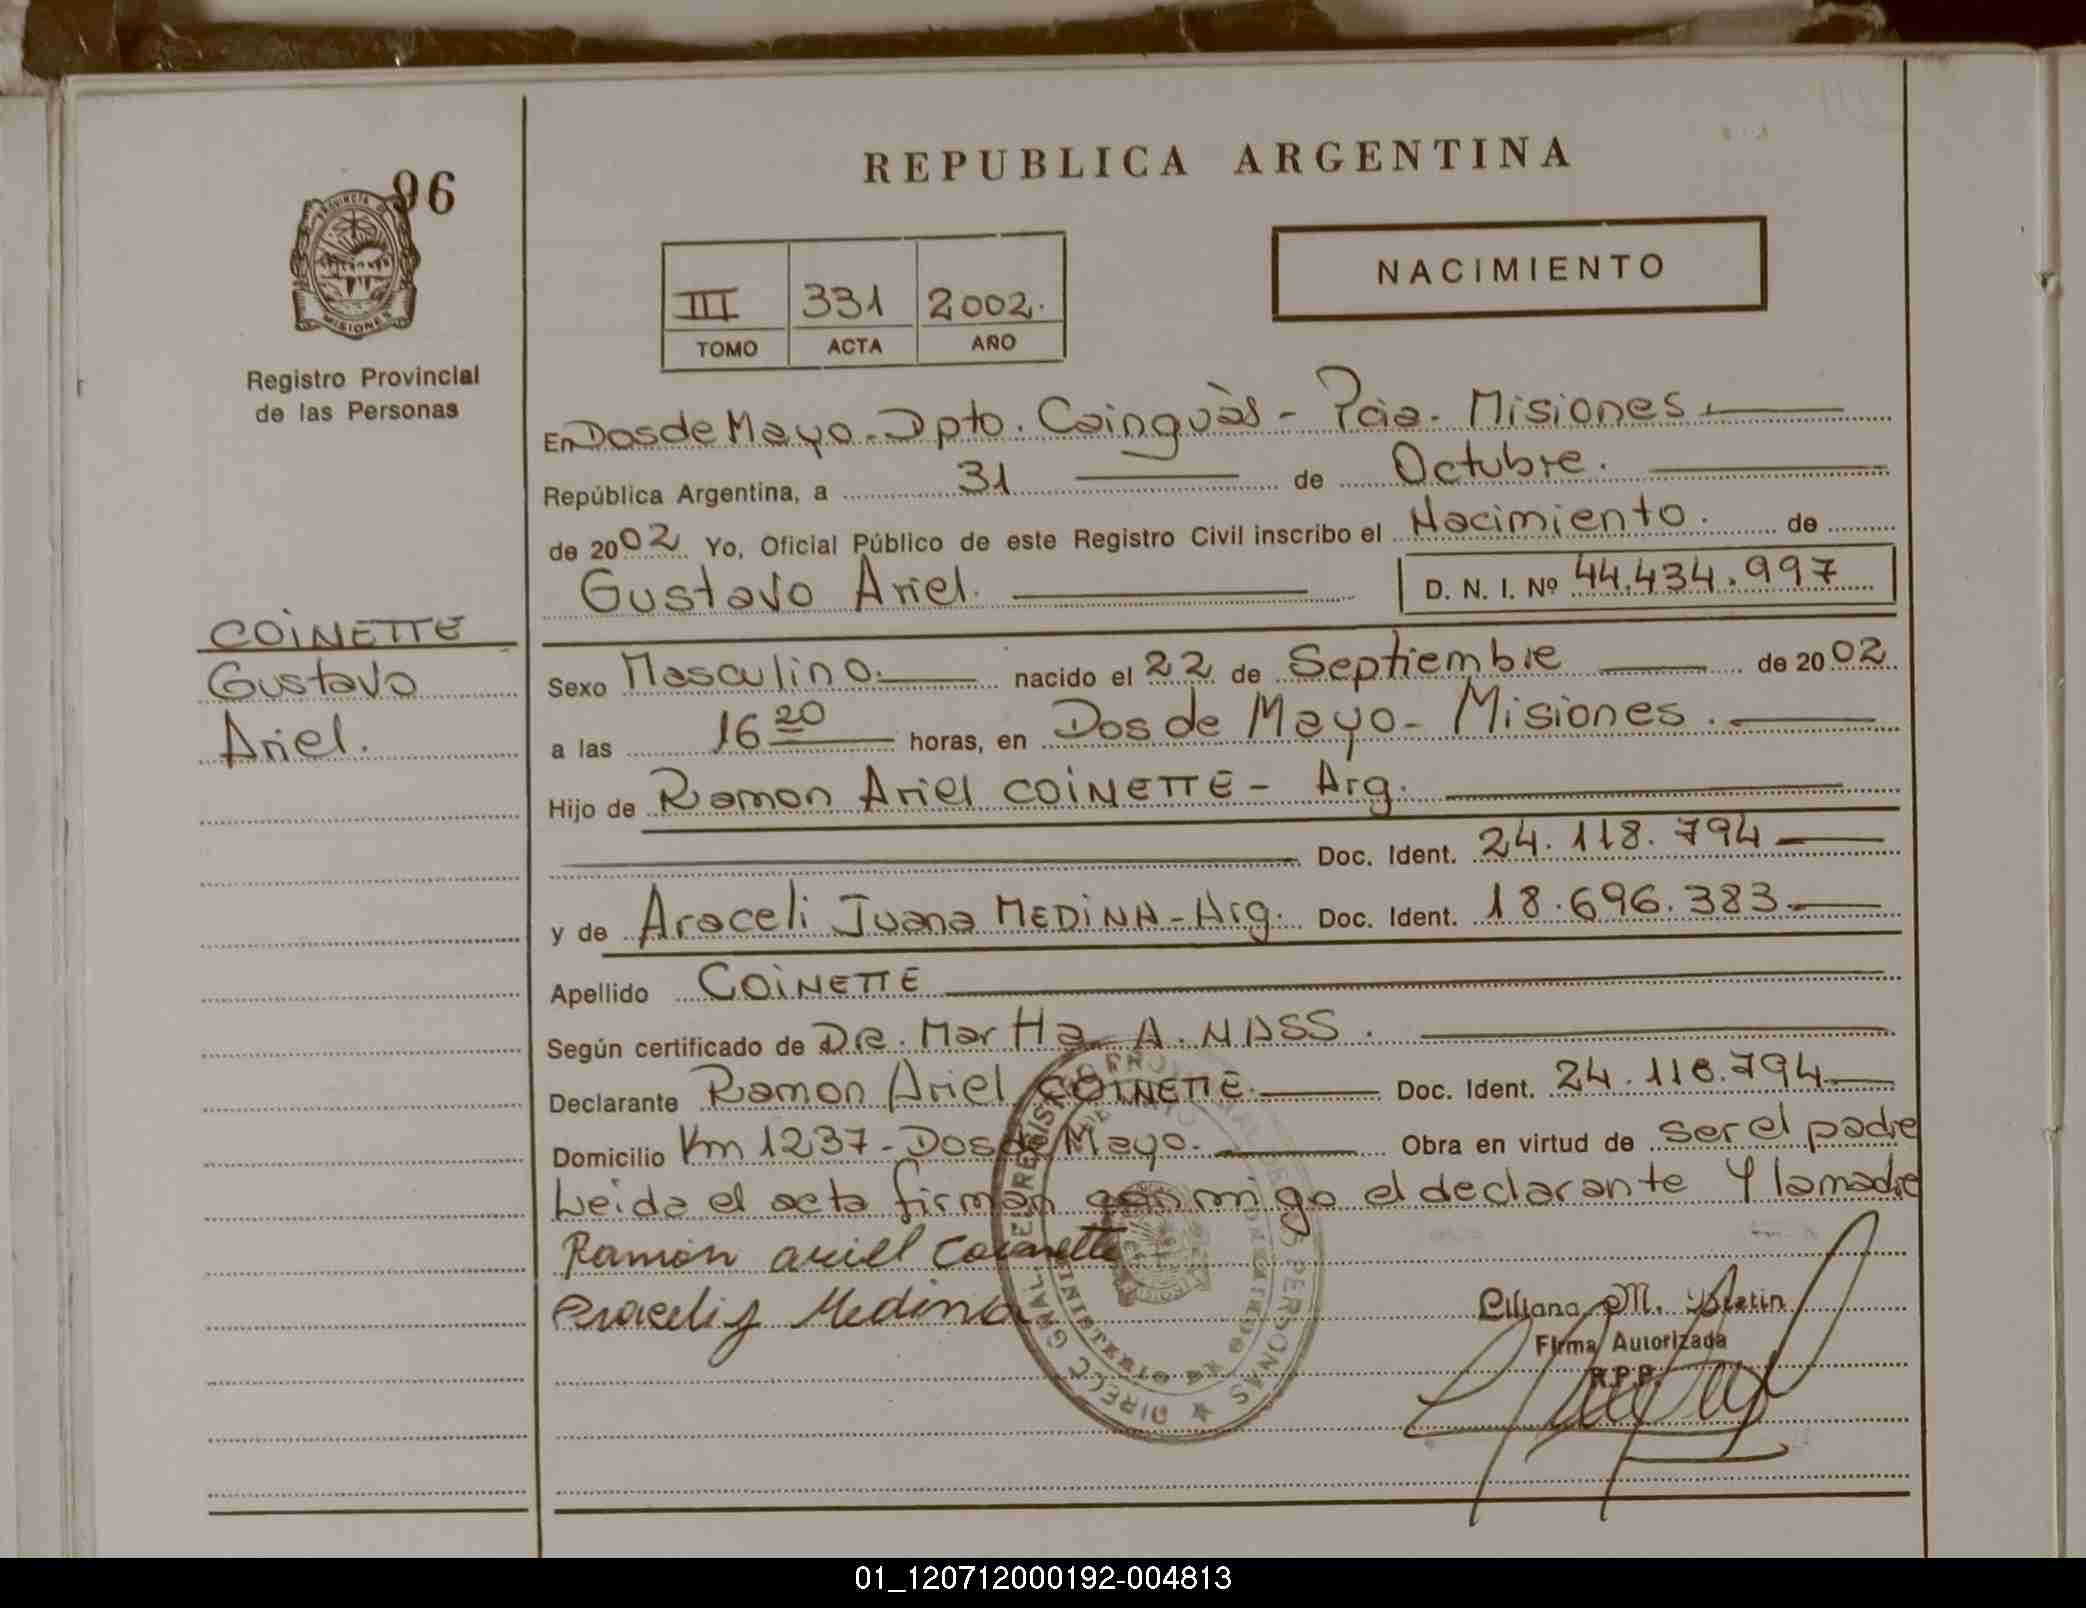 96
PROVINCIA DE
MISIONES
Registro Provincial
de las Personas
COINETTE
Gustavo
Ariel.
REPUBLICA ARGENTINA
NACIMIENTO
III 331 2002.
TOMO ACTA AÑO
En Dos de Mayo - Dpto. Cainguàs - Pcia - Misiones.
República Argentina, a 31 de Octubre.
de 2002 Yo, Oficial Público de este Registro Civil inscribo el Nacimiento. de
Gustavo Ariel. D. N. I. Nº 44.434.997
Sexo Masculino. nacido el 22 de Septiembre de 2002
a las 16 20 horas, en Dos de Mayo - Misiones.
Hijo de Ramon Ariel COINETTE - Arg.
Doc. Ident. 24.118.794
y de Araceli Juana MEDINA - Arg. Doc. Ident. 18.696.383
Apellido COINETTE
Según certificado de DRA. MarTHa A. NASS.
Declarante Ramon Ariel COINETTE. Doc. Ident. 24.118.794
Domicilio Km 1237 - Dos de Mayo. Obra en virtud de ser el padre
Leida el acta firman conmigo el declarante y la madre
Ramón ariel Coinette
Araceli J Medina
DIRECC. GRAL. DEL REGISTRO PROVINCIAL DE LAS PERSONAS
Liliana M.
Firma Autorizada
R.P.P.
01_120712000192-004813